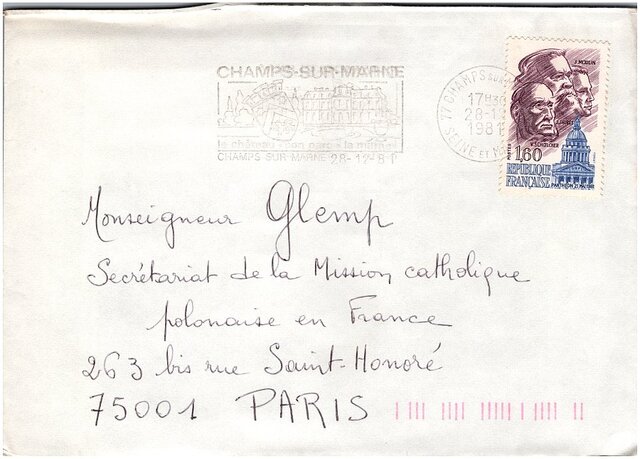 CHAMPS-SUR-MARNE
le château son parc à la
CHAMPS SUR MARNE 28-12-81
77 CHAMPS SUR
17H30
28-12
1981
SEINE et
J. MOULIN
J. JAURES
V. SCHŒLCHER
POSTES 1,60
REPUBLIQUE
FRANÇAISE
PANTHEON 21 MAI 1981
Monseigneur Glemp
Secrétariat de la Mission catholique
polonaise en France
263 bis rue Saint-Honoré
75001 PARIS